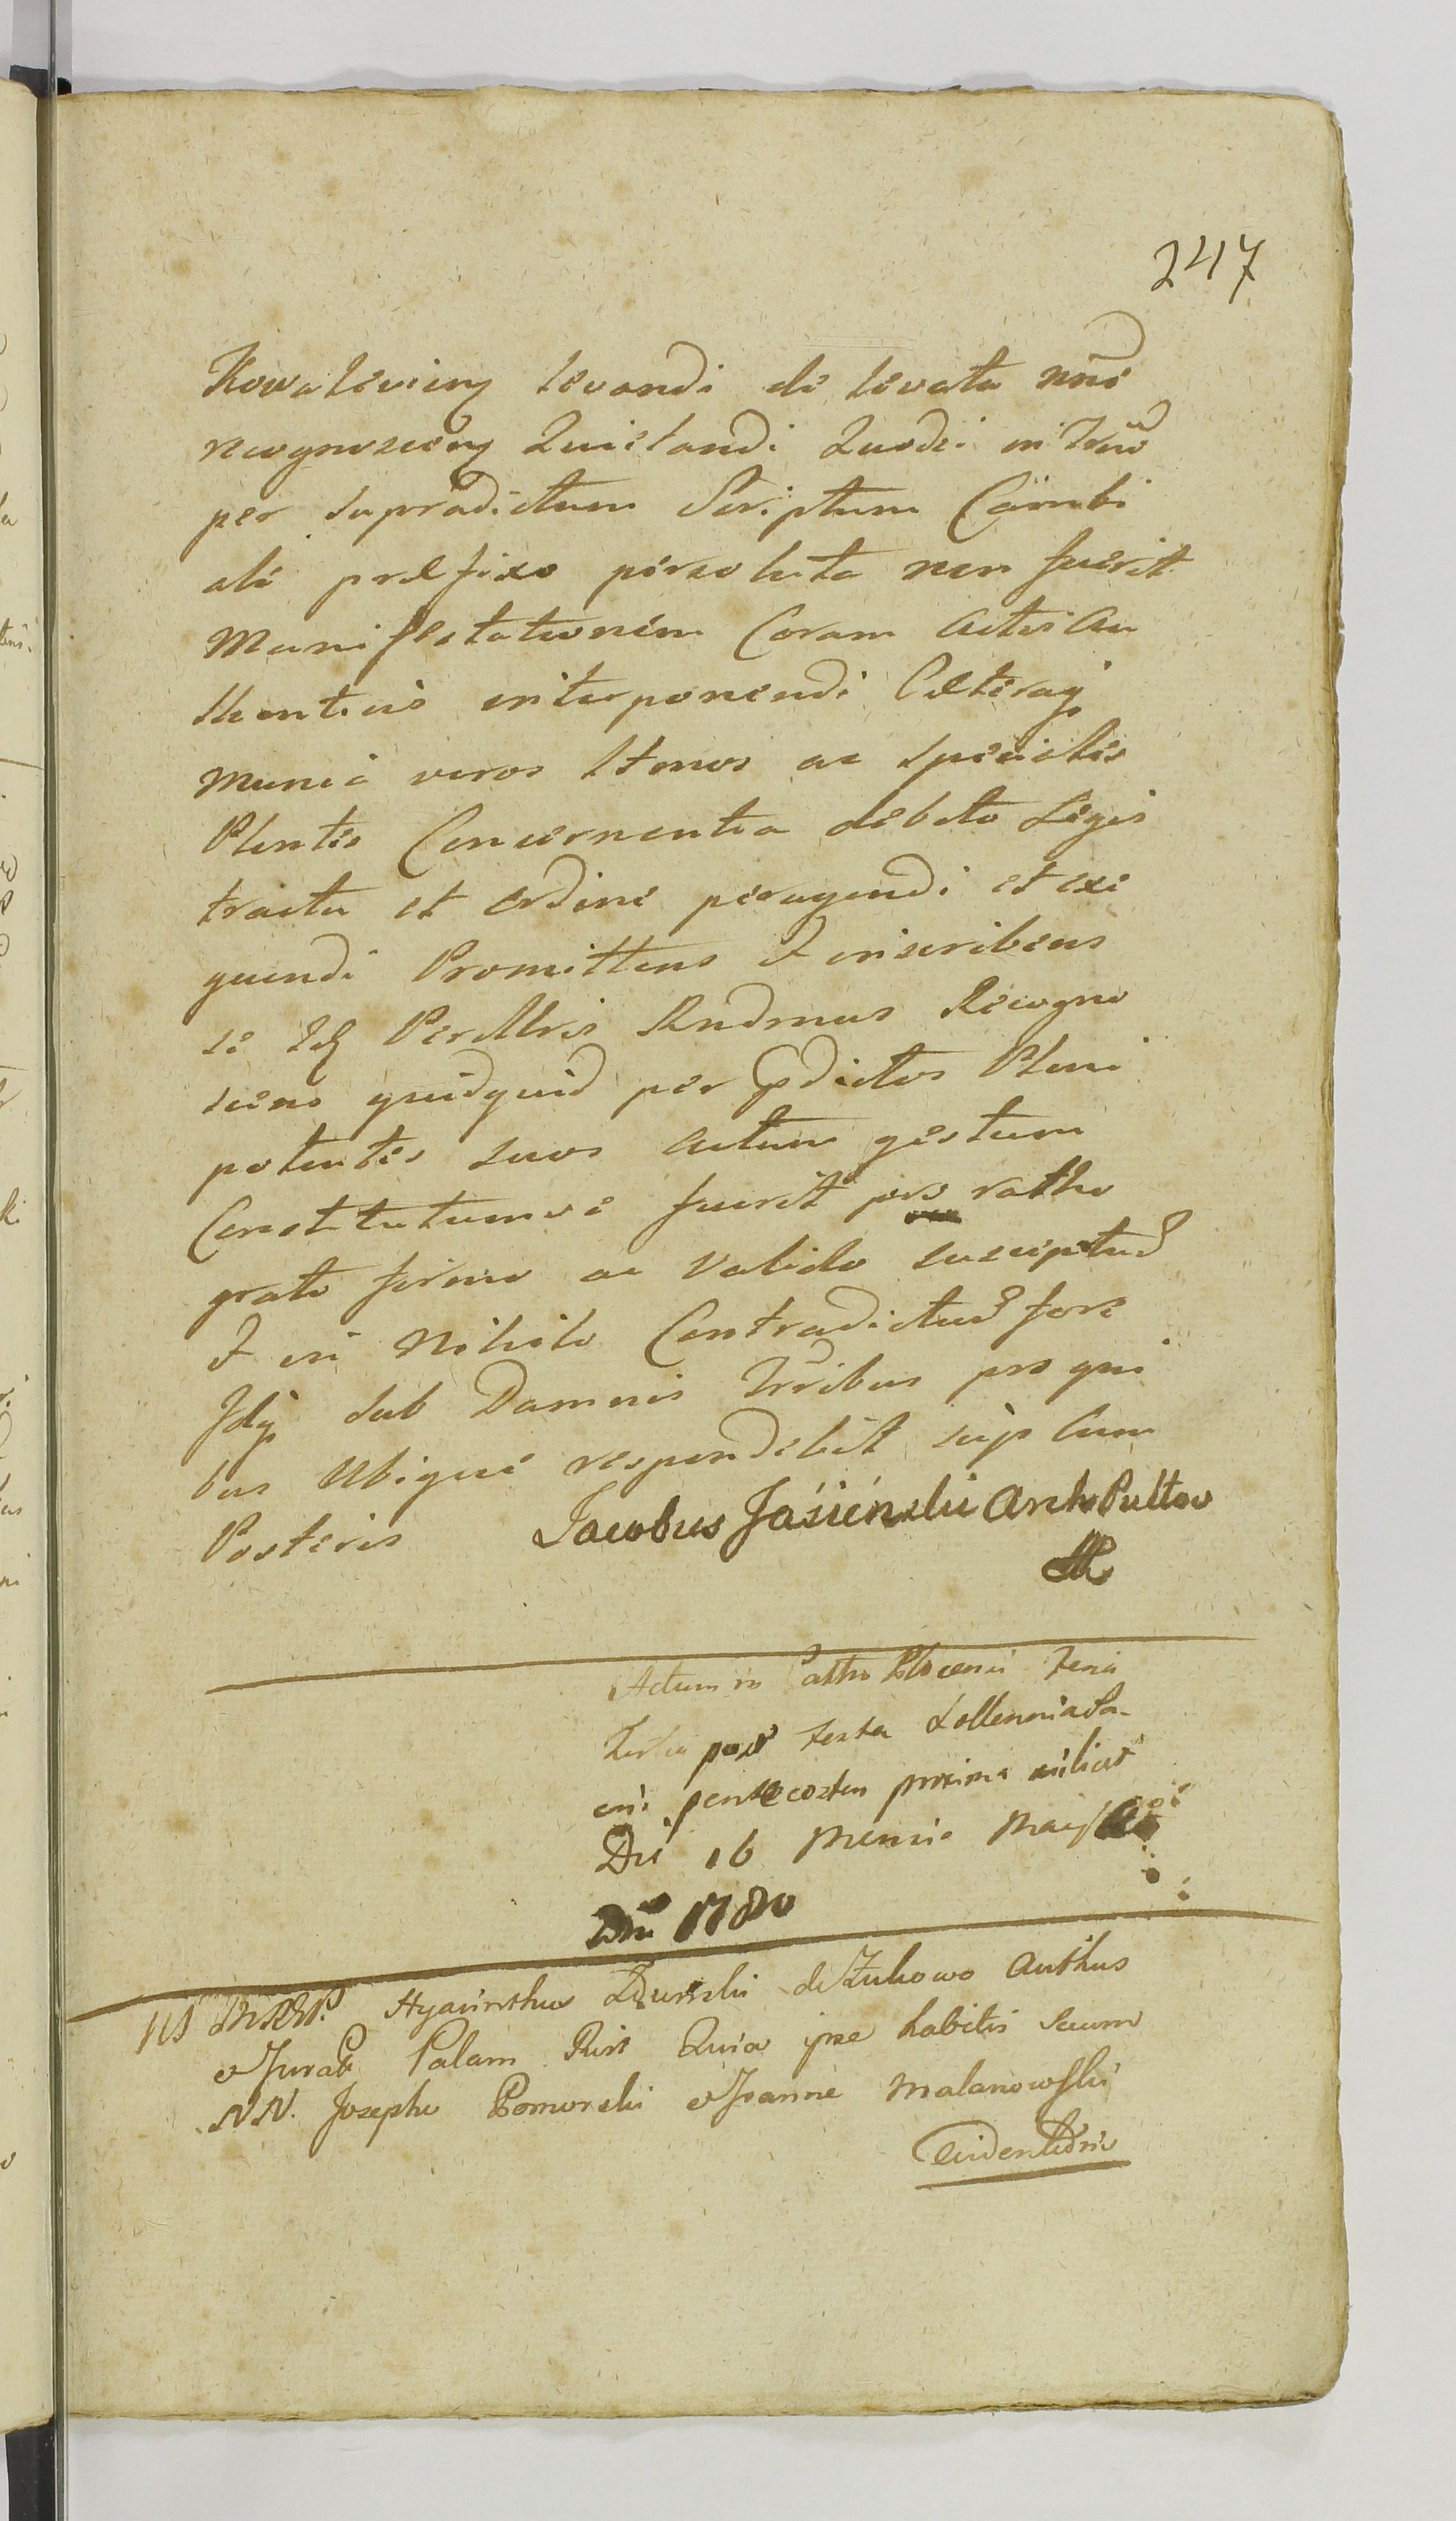 247
Kowalevieng levandi de levata nne
recognoscieng Quietandi Quodsi in Tno
per supradictum Scriptum Cambi
ale præfixo persoluta non fuerit
Manifestationem Coram Actis Au
thenticis interponendi Cæteraq
Munia veros ltmos ac speciales
Plentes Concernentia debito Legis
tractu et ordine peragendi et exe
quendi Promittens et inscribens
se Idq PerIllris Rndmus Recogno
scens quidquid per pdictos Pleni
potentes suos actum gestum
Constitutumve fuerit pro ratho
grato firmo ac valido suscipitud
et in Nihilo Contradictud fore
Idq sub Damnis Trribus pro qui
bus Ubique respondebit seip Cum
Posteris Jacobus Jasieński Arch Pultov
Actum in Castro Plocensi Feria
Tertia post Festa Sollennia Sa-
cri pentecosten proxima
Die 16 Mensis Maij
Dni 1780
Hyacinthus Żurński de Żukowo Authus
et Jurat Palam Quia ipse habitis Secum
NN. Josepho Pomorski et Joanne Malanowski